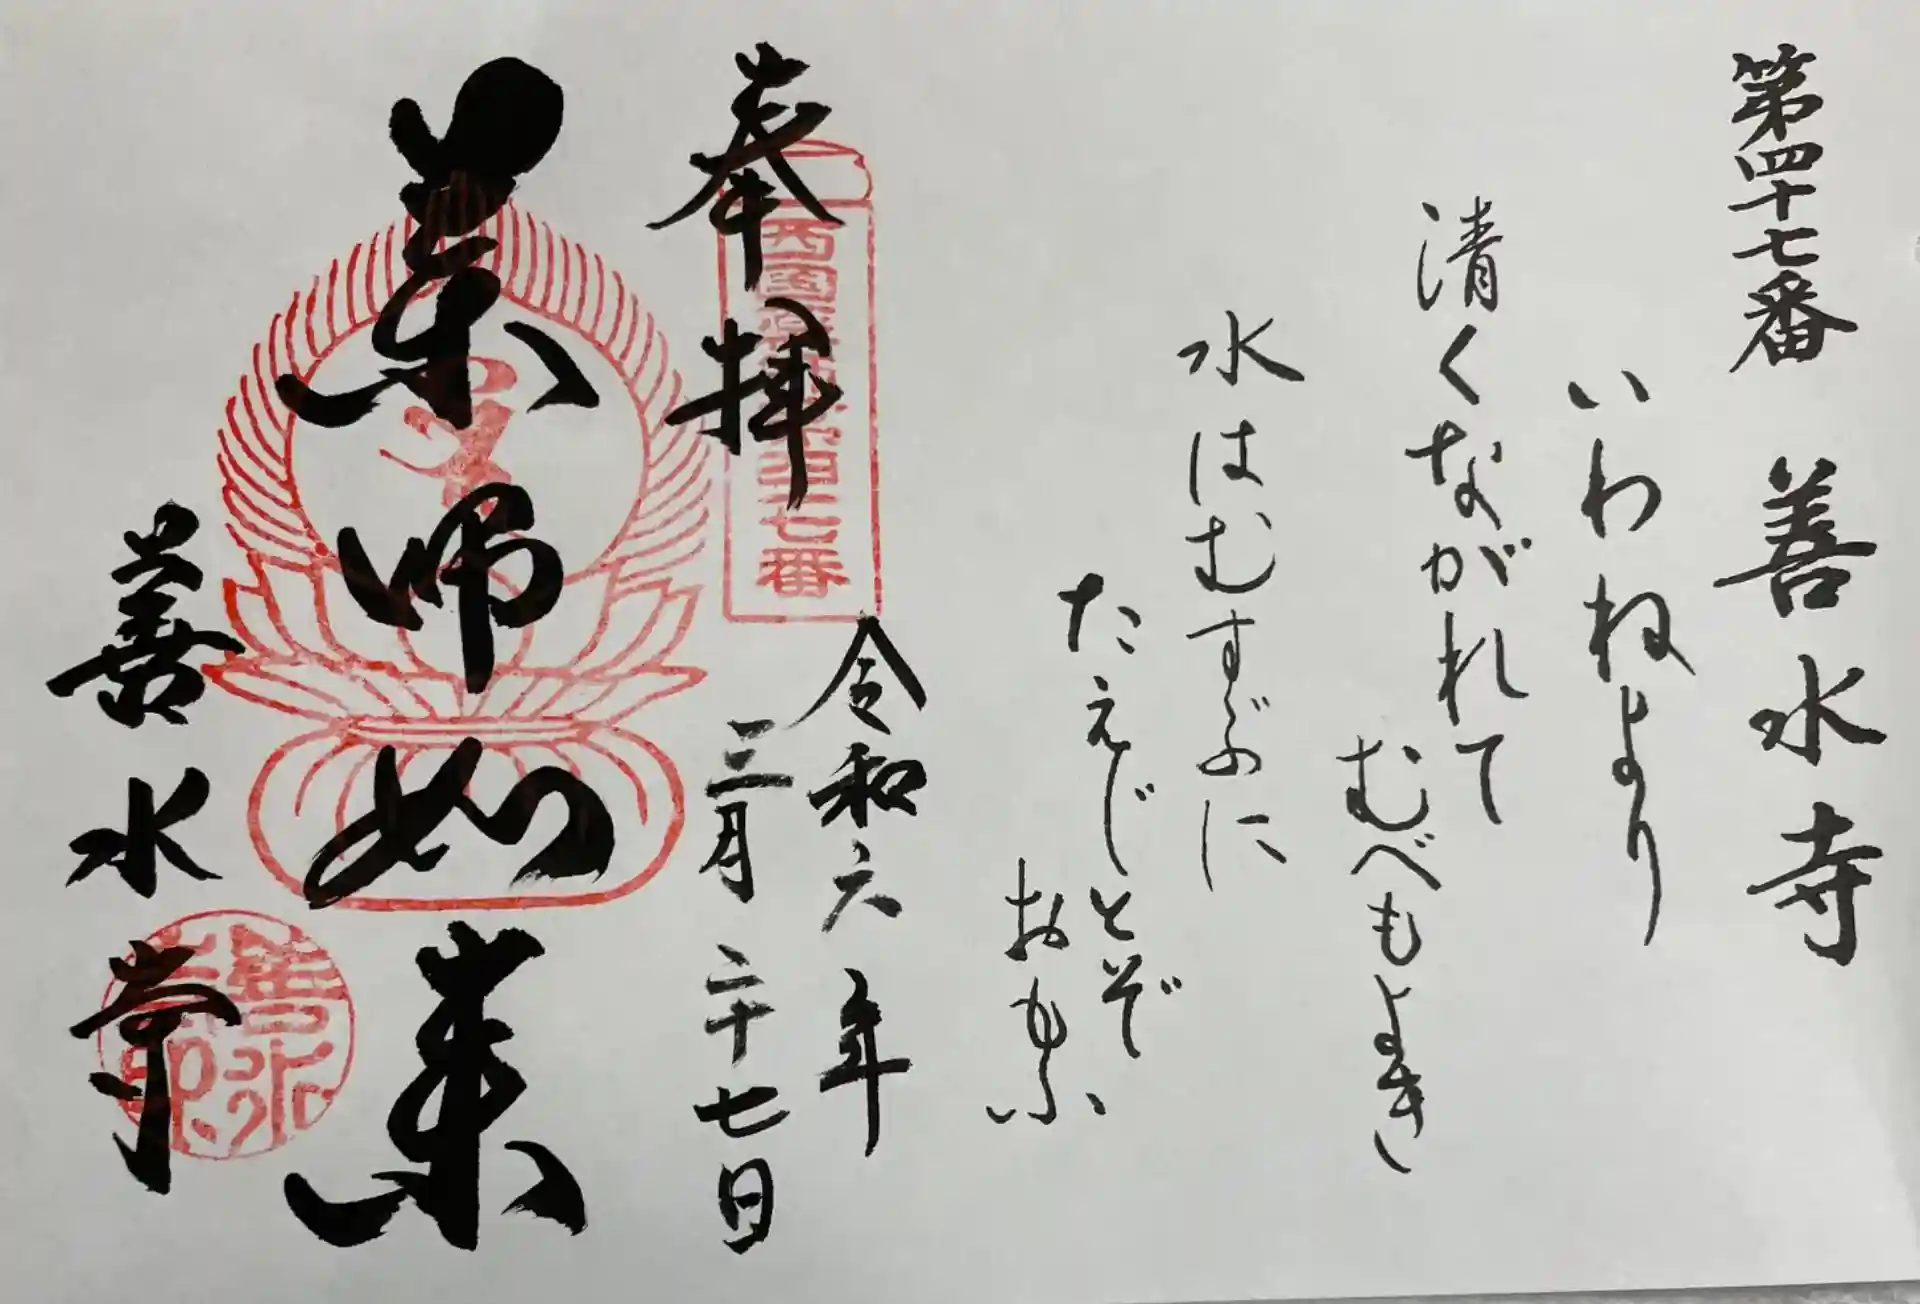 第四十七番 善水寺
いわねより
清くながれて
むべもよき
水はむすぶに
たえじとぞ
おもふ
奉拝
西国薬師第四十七番
令和六年
三月二十七日
薬師如来
善水寺
善水寺印